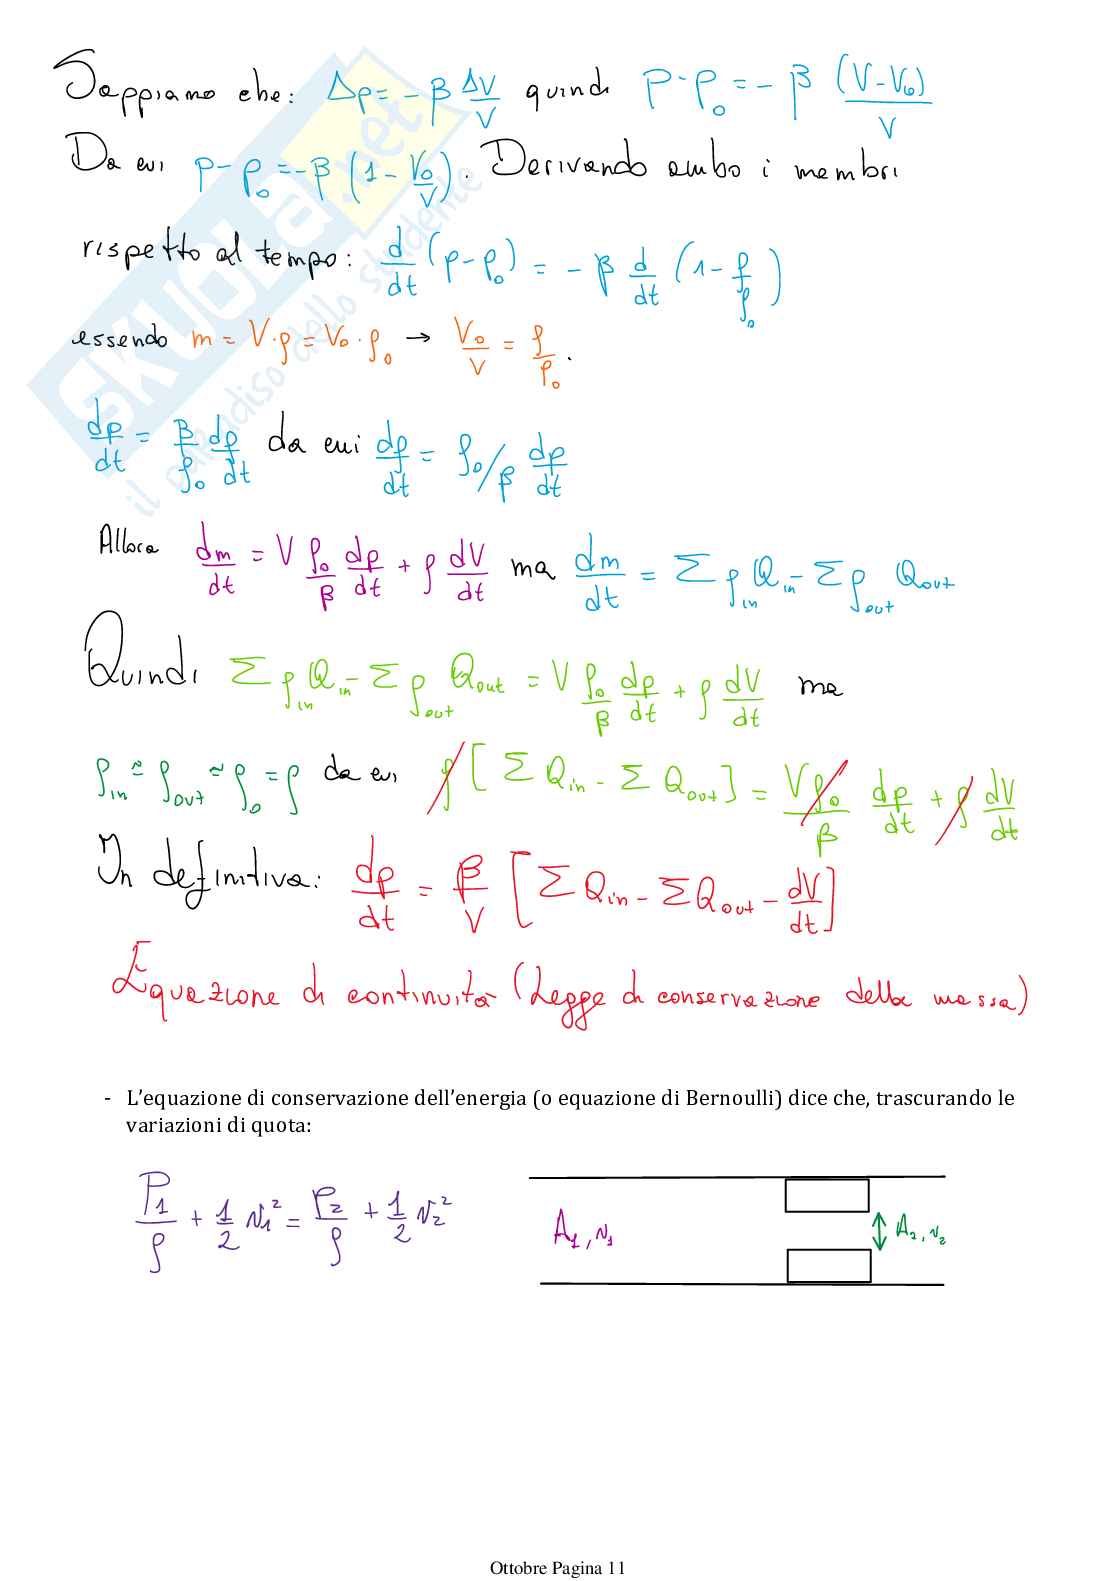 Sappiamo che: Δp = - β ΔV/V quindi p - p₀ = - β (V - V₀)/V
Da cui p - p₀ = - β (1 - V₀/V). Derivando ambo i membri
rispetto al tempo: d/dt (p - p₀) = - β d/dt (1 - ρ/ρ₀)
essendo m = V·ρ = V₀·ρ₀ → V₀/V = ρ/ρ₀.
dp/dt = β/ρ₀ dρ/dt da cui dρ/dt = ρ₀/β dp/dt
Allora dm/dt = V ρ₀/β dp/dt + ρ dV/dt ma dm/dt = Σ ρin Qin - Σ ρout Qout
Quindi Σ ρin Qin - Σ ρout Qout = V ρ₀/β dp/dt + ρ dV/dt ma
ρin ≃ ρout ≃ ρ₀ = ρ da cui ρ [Σ Qin - Σ Qout] = Vρ₀/β dp/dt + ρ dV/dt
In definitiva: dp/dt = β/V [Σ Qin - Σ Qout - dV/dt]
Equazione di continuità (Legge di conservazione della massa)
- L'equazione di conservazione dell'energia (o equazione di Bernoulli) dice che, trascurando le
variazioni di quota:
P₁/ρ + 1/2 v₁² = P₂/ρ + 1/2 v₂²
A₁, v₁
A₂, v₂
Ottobre Pagina 11
SKUOLA.net
il paradiso dello studente